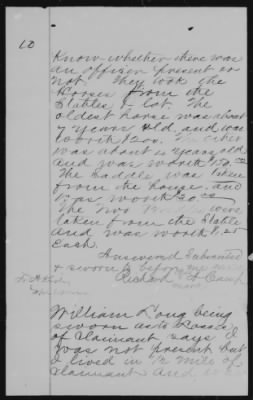 10
Know whether there was
an officer present or
not. They took the
Horses from the
Stables & lot. The
oldest horse was about
7 years old and was
worth
was about years old
and was worth 150.00
The Saddle was taken
from the house and
was worth 20.00
The two were
taken from the Stable
and was worth 1.25
Each.
Answered Subscribed
& sworn to before me
Camp
William Long being
sworn as to Losses
of Claimant says I
was not present but
I lived in 1/2 mile of
Claimant and